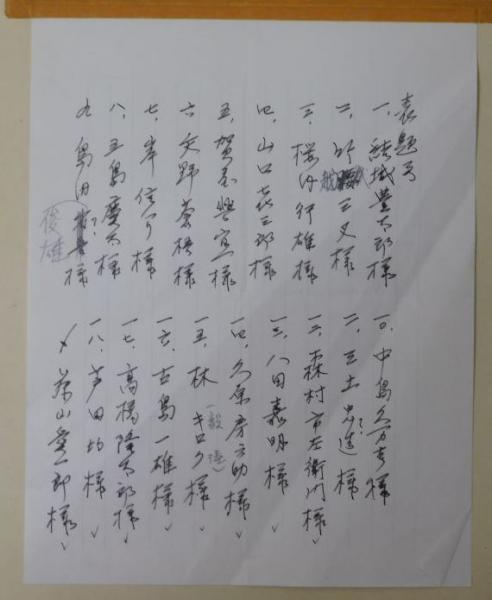 表題号
一、結城豊太郎様
二、竹越三叉様
三、桜内行雄様
四、山口喜三郎様
五、賀屋興宣様
六、矢野 様
七、岸 信介様
八、五島慶太様
九、島田 俊雄 様
一〇、中島久万吉様
一一、三土忠造様
一二、森村市左衛門様
一三、八田嘉明様
一四、久原房之助様
一五、林 キロク様
一六、古島一雄様
一七、高橋隆太郎様
一八、芦田均様
〆 茶山 一郎様